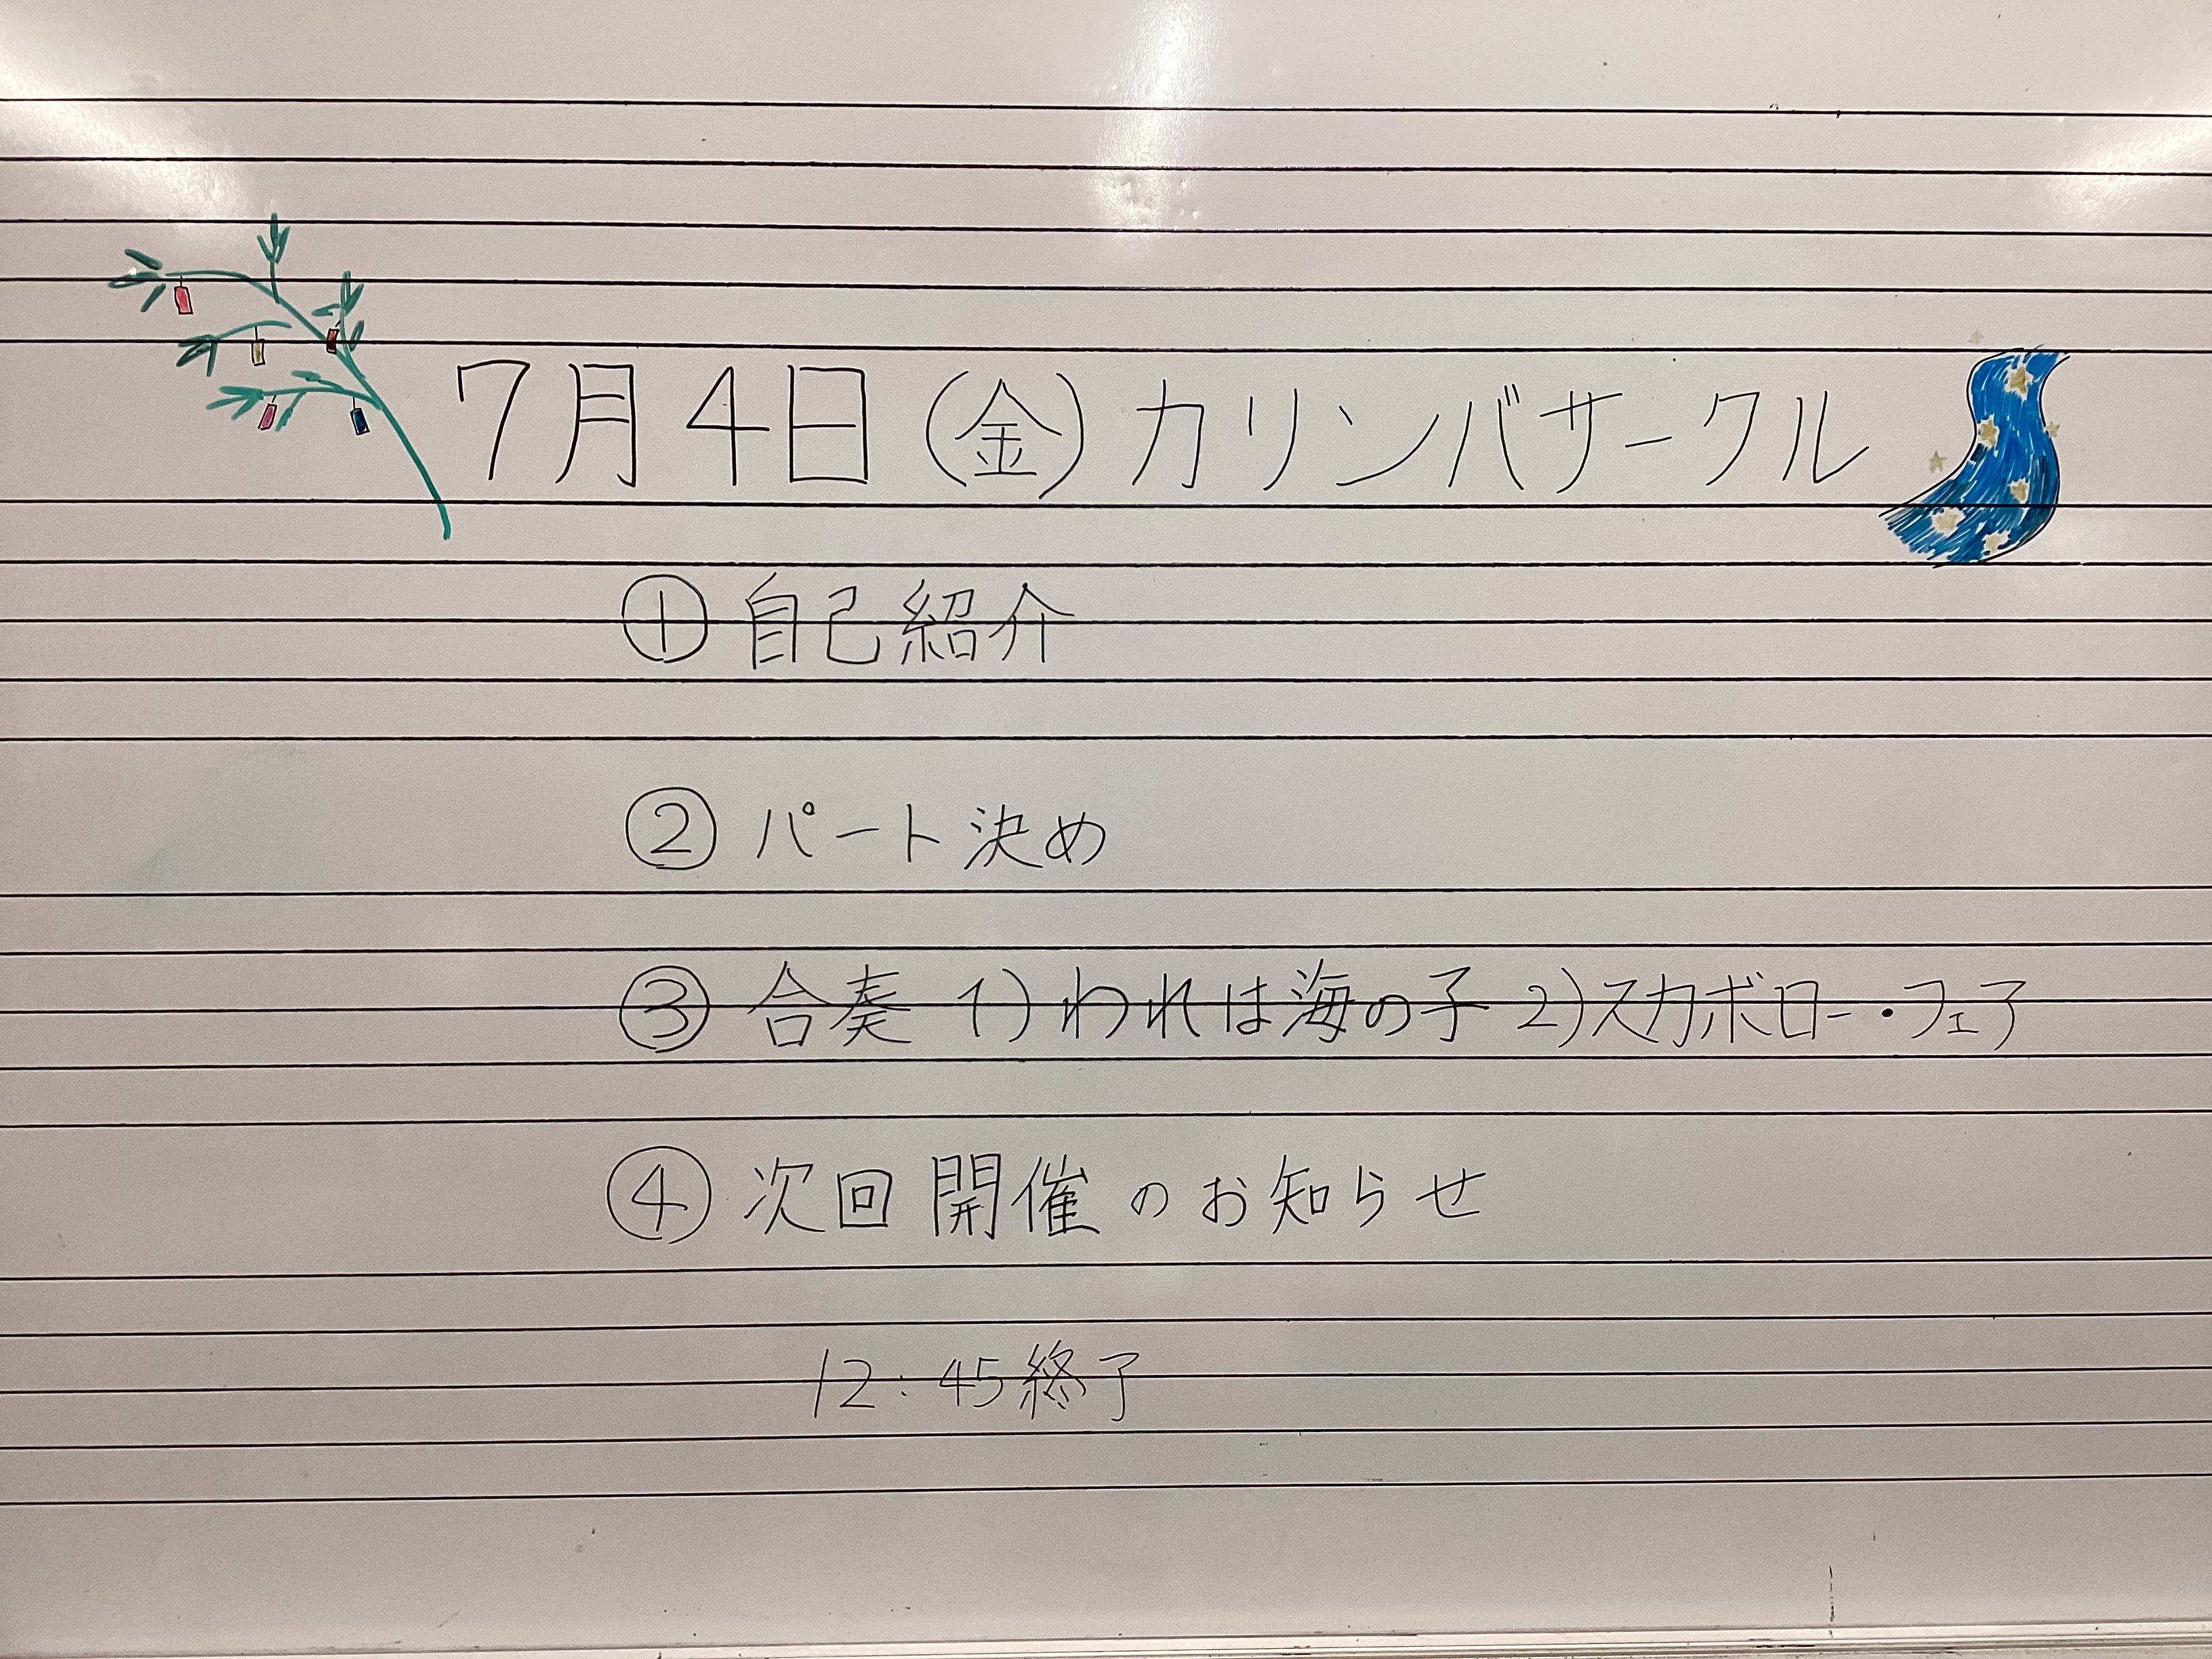 7月4日(金)カリンバサークル
① 自己紹介
② パート決め
③ 合奏 1)われは海の子 2)スカボロー・フェア
④ 次回開催のお知らせ
12:45終了